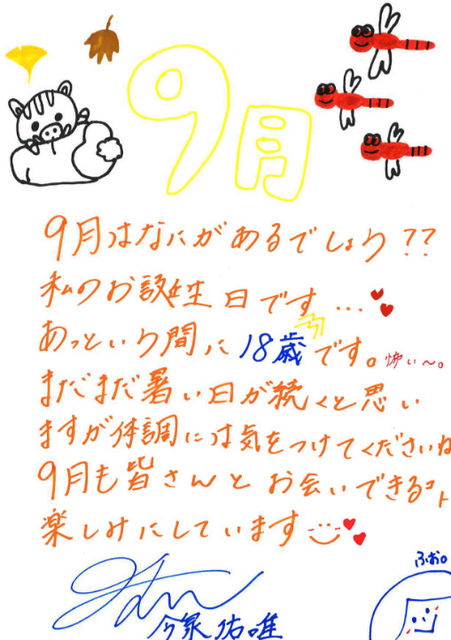 9月
9月はなにがあるでしょう??
私のお誕生日です…
あっという間に18歳です。怖い〜。
まだまだ暑い日が続くと思い
ますが体調には気をつけてくださいね
9月も皆さんとお会いできるコト
楽しみにしています
ふぉ。
今泉佑唯